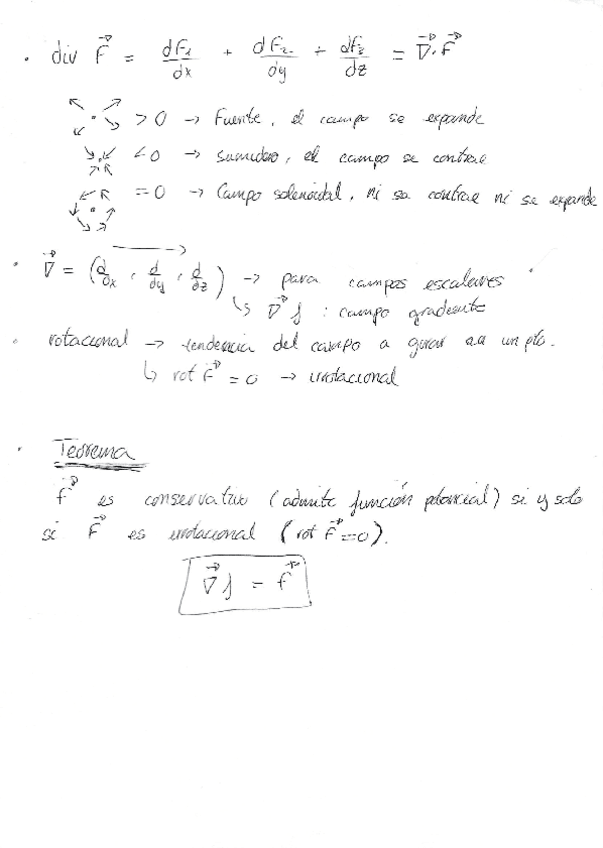 · div F⃗ = dF₁/dx + dF₂/dy + dF₃/dz = ∇⃗·F⃗
> 0 → Fuente, el campo se expande
< 0 → sumidero, el campo se contrae
= 0 → Campo solenoidal, ni se contrae ni se expande
· ∇⃗ = (d/dx, d/dy, d/dz) → para campos escalares
↳ ∇⃗f : campo gradiente
· rotacional → tendencia del campo a girar a.a un pto.
↳ rot F⃗ = 0 → irrotacional
· Teorema
F⃗ es conservativo (admite función potencial) si y solo
si F⃗ es irrotacional (rot F⃗ = 0).
∇⃗f = F⃗